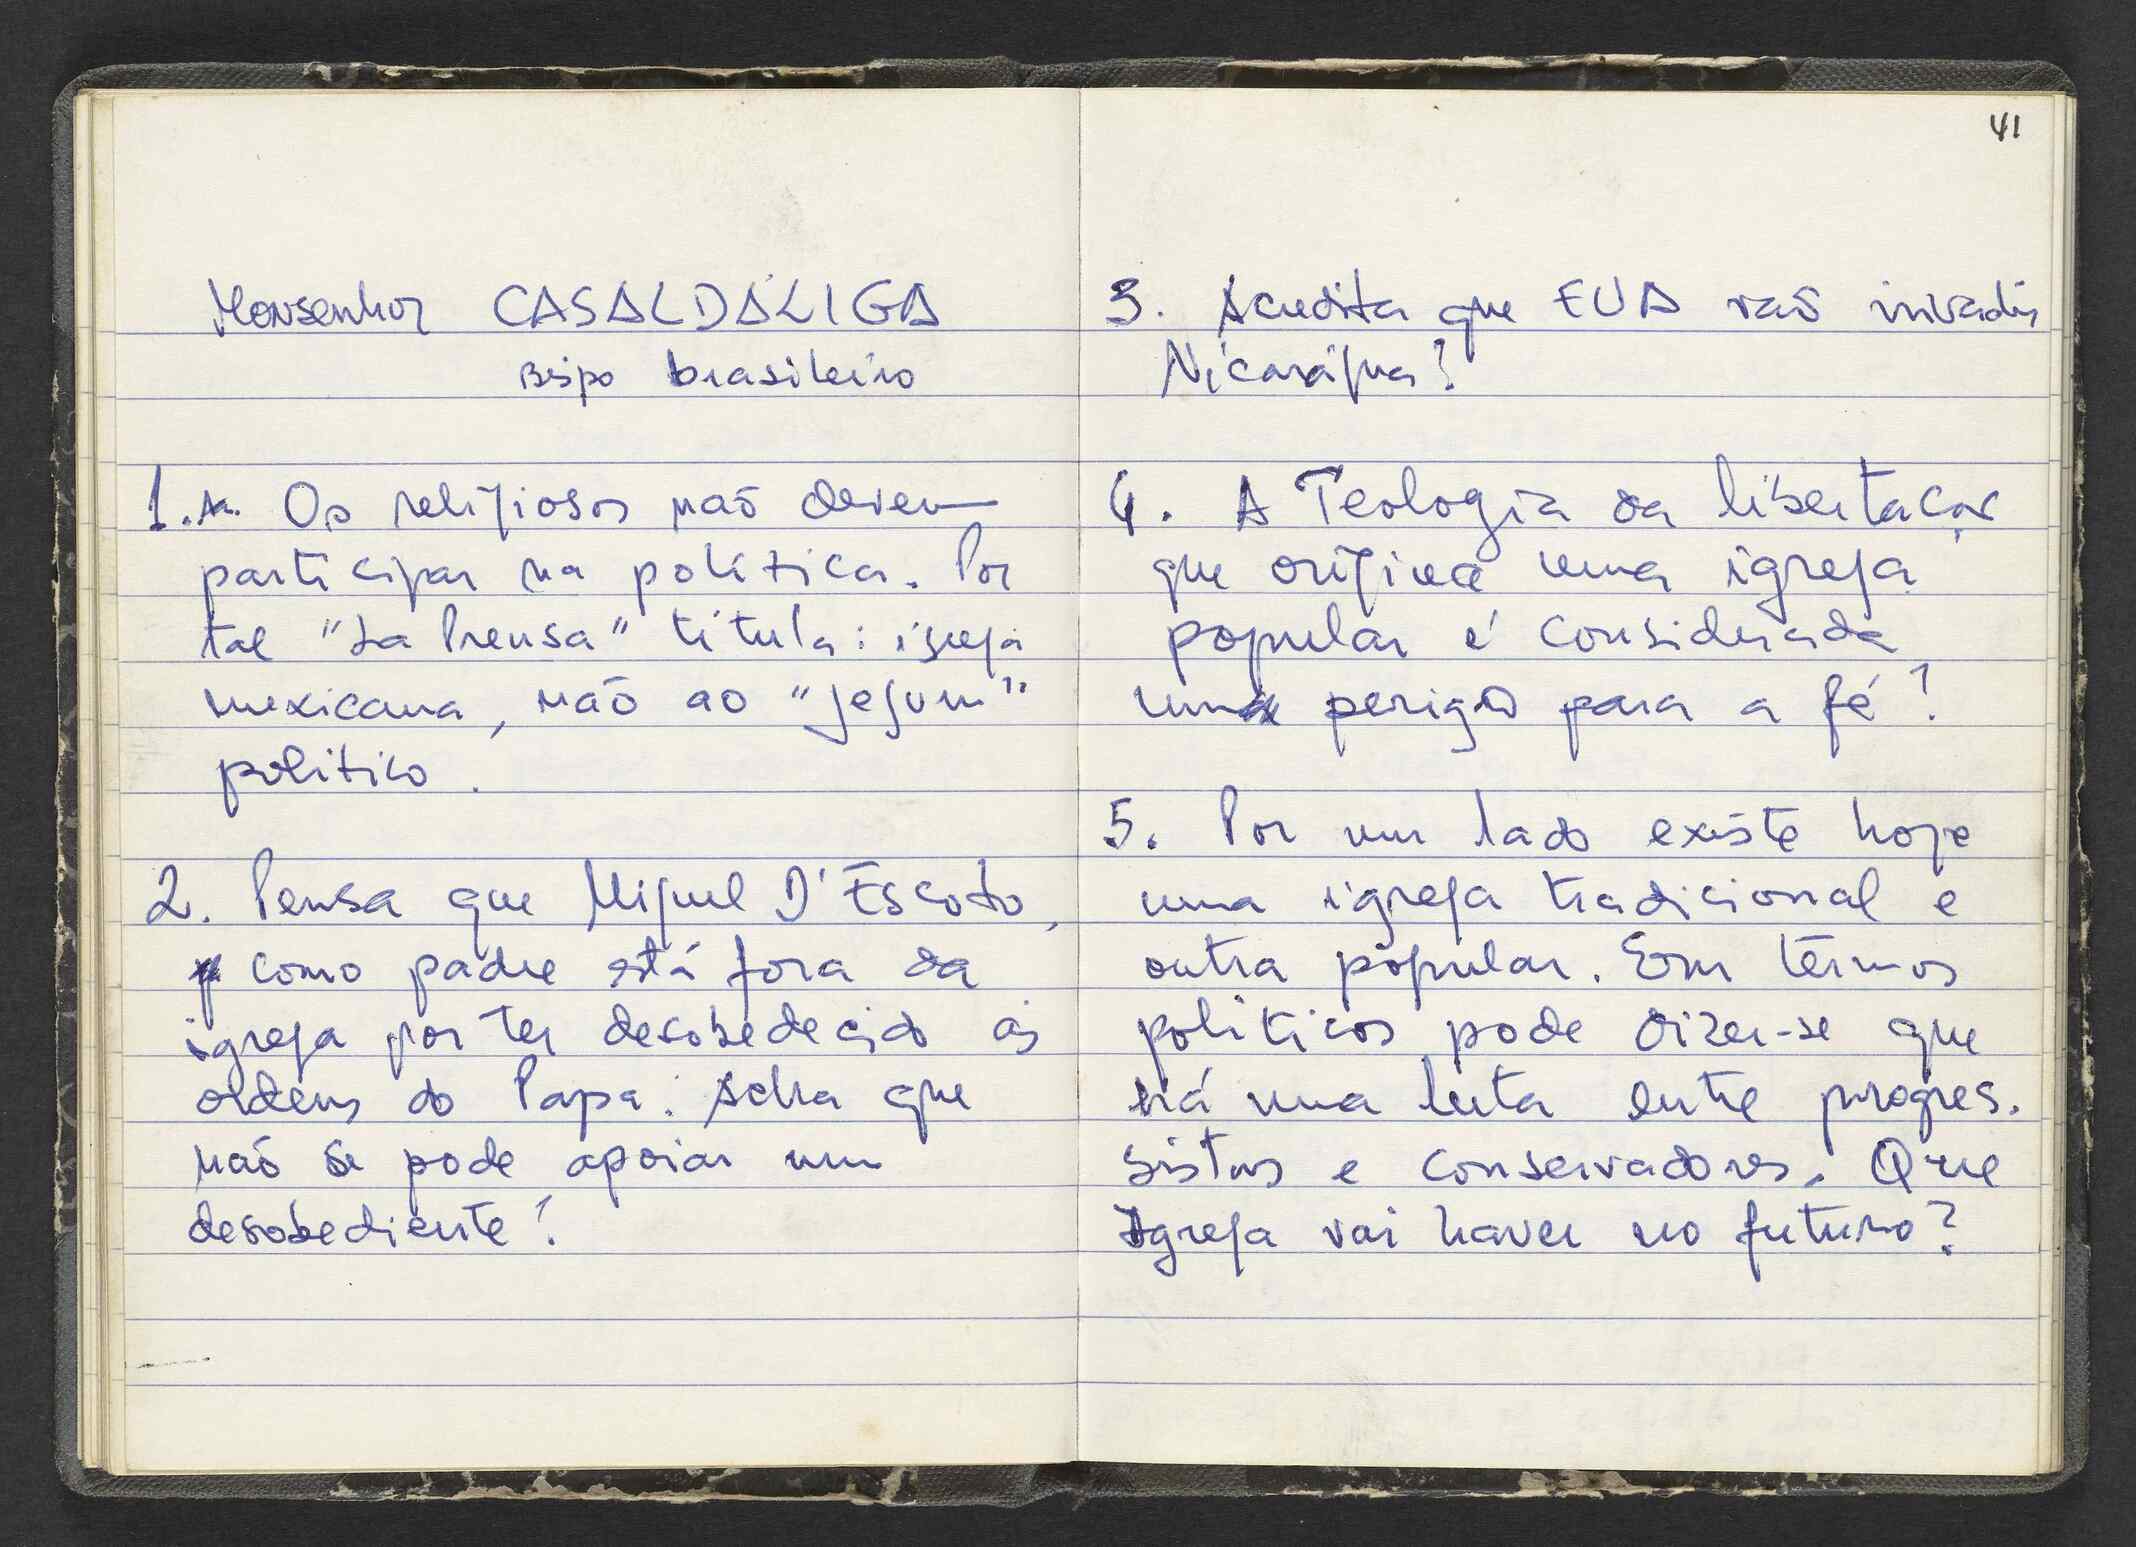 Monsenhor CASALDÁLIGA
Bispo brasileiro
1. Os religiosos não devem
participar na política. Por
tal "La Prensa" titula: igreja
mexicana, não ao "jejum"
politico.
2. Pensa que Miguel D'Escoto,
como padre está fora da
igreja por ter desobedecido às
ordens do Papa. Acha que
não se pode apoiar um
desobediente?
41
3. Acredita que EUA vão invadir
Nicarágua?
4. A Teologia da libertaçao
que origina uma igreja
popular é considerada
um perigo para a fé?
5. Por um lado existe hoje
uma igreja tradicional e
outra popular. Em termos
politicos pode dizer-se que
há uma luta entre progres.
sistas e conservadores. Que
Igreja vai haver no futuro?